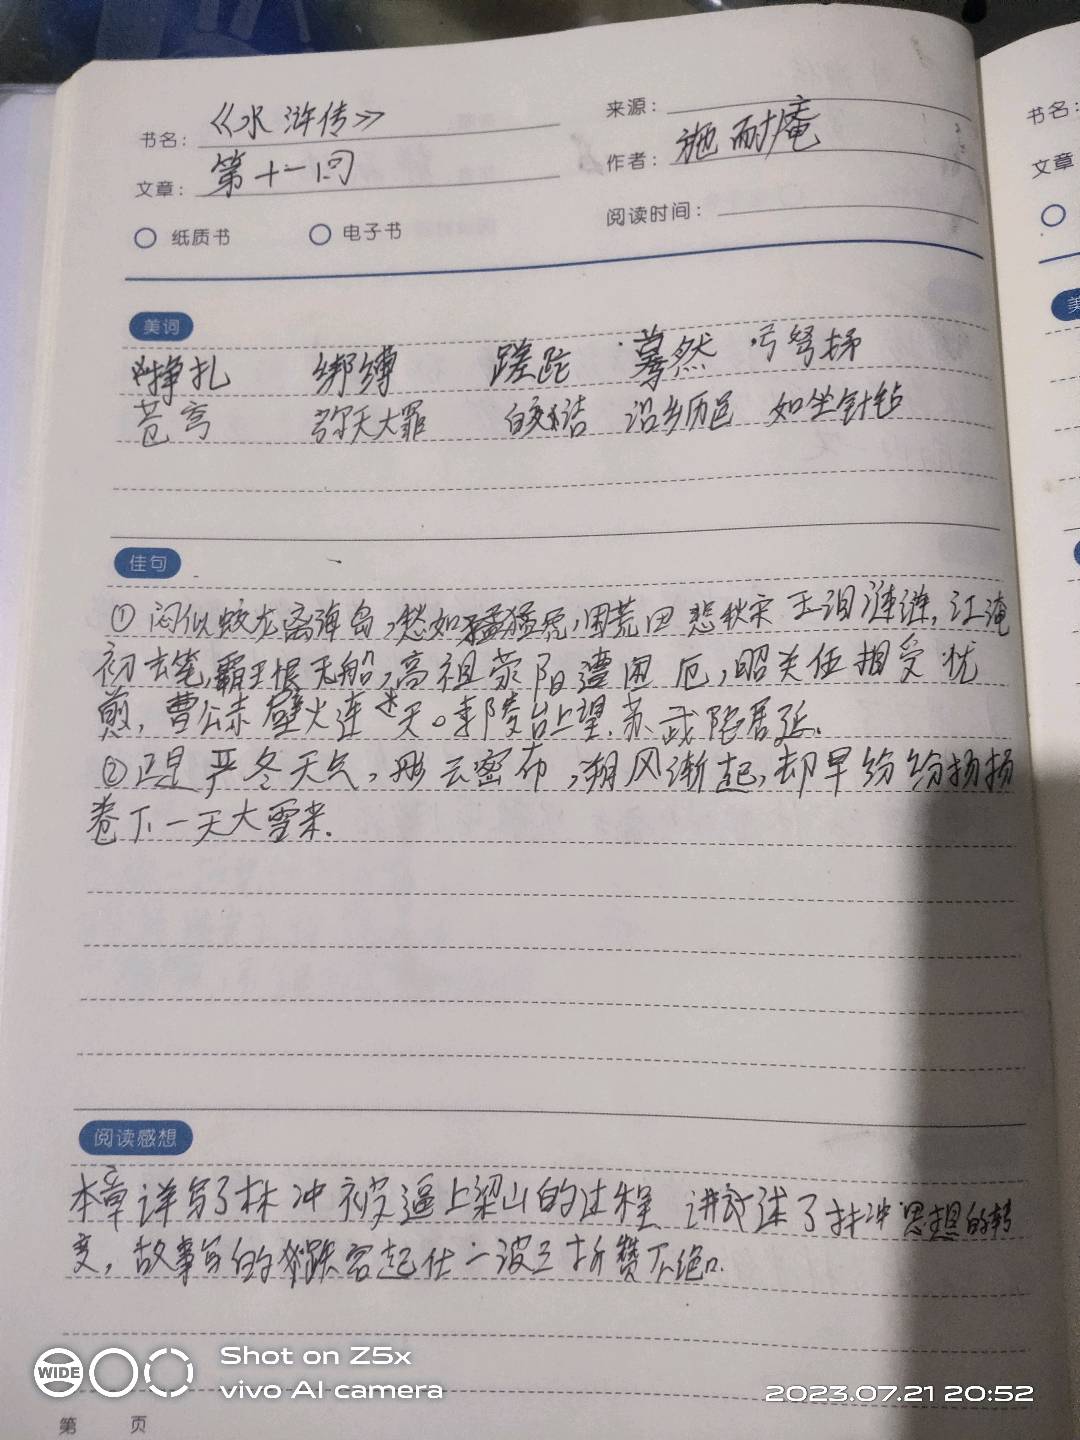 书名：《水浒传》
来源：
文章：第十一回
作者：施耐庵
纸质书 电子书
阅读时间：
美词
挣扎 绑缚 蹉跎 蓦然 弓弩
苍穹 弥天大罪 皎洁 沿乡历邑 如坐针钻
佳句
①闷似蛟龙离海岛,愁如猛虎,困荒田 悲秋宋玉泪涟涟,江淹
初去笔,霸王恨无船,高祖荥阳遭困厄,昭关伍相受忧
煎,曹公赤壁火连天。李陵台上望,苏武陷居延.
②正是严冬天气,彤云密布,朔风渐起,却早纷纷扬扬
卷下一天大雪来.
阅读感想
本章详写了林冲被逼上梁山的过程 讲述了林冲思想的转
变,故事写的跌宕起伏一波三折赞不绝口.
WIDE
Shot on Z5x
vivo AI camera
2023.07.21 20:52
第 页
书名：
文章